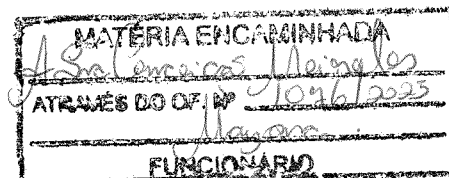 MATÉRIA ENCAMINHADA
A Sra Conceição Meireles
ATRAVÉS DO OF. Nº 1046/2023
Mayara
FUNCIONÁRIO